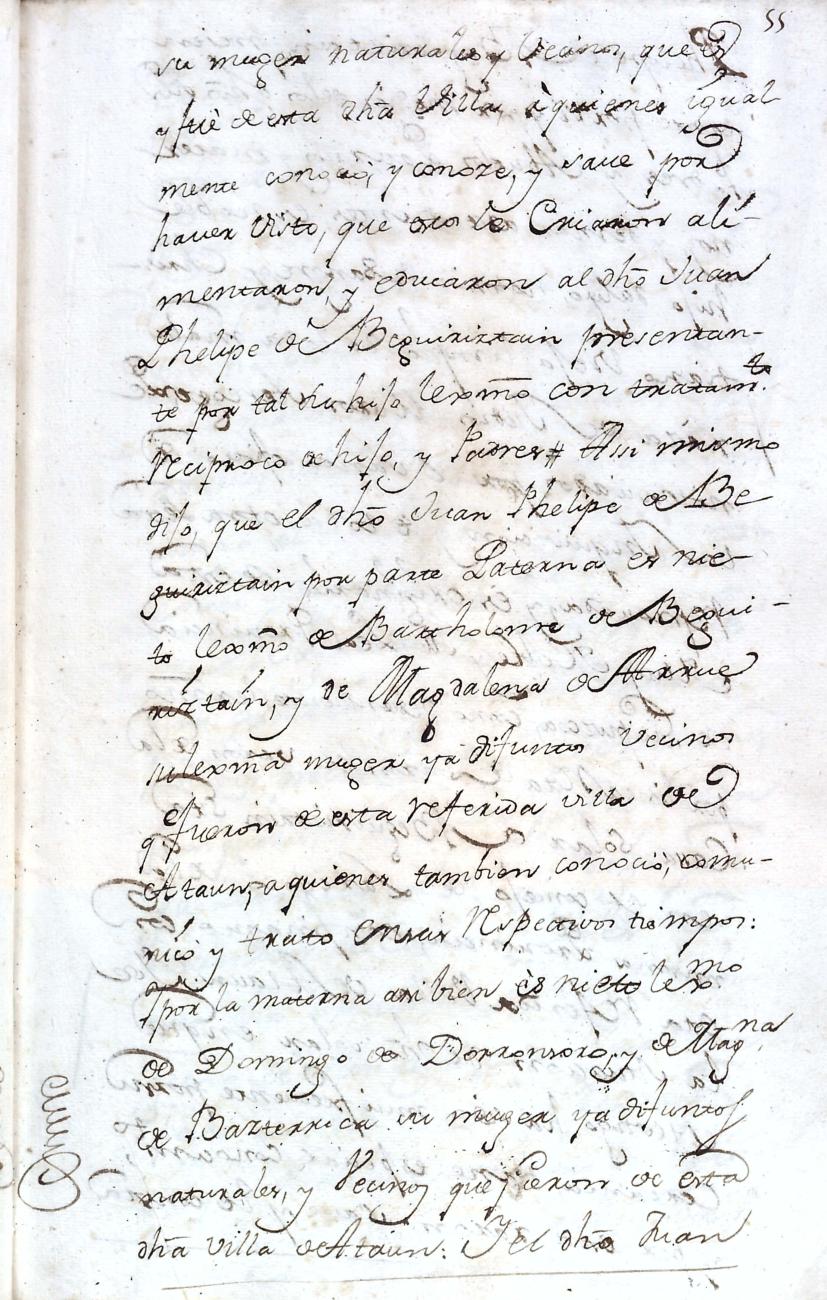 55
su muger naturales y Vecinos, que es
y fuè de esta dha Villa, à quienes igual
mente conoció, y conoze, y save por
haver visto, que estos le Criaron ali-
mentaron, y educaron al dho Juan
Phelipe de Beguiriztain presentan-
te por tal su hijo lexmo con tratamto.
reciproco de hijo, y Padres # Assi mismo
dijo, que el dho Juan Phelipe de Be
guiriztain por parte Paterna es nie-
to lexmo de Bartholome de Begui-
riztaín, y de Magdalena de Arrue
su lexma muger ya difuntos Vecinos
q fueron de esta referida villa de
Ataun, a quienes tambien conoció, comu-
nicó y trato en sus respectivos tiempos:
Y por la materna asi bien ès nieto lexmo
de Domingo de Dorronsoro, y de Magna
de Barterrica su muger ya difuntos
naturales, y Vecinos que fueron de esta
dha villa de Ataun: Y el dho Juan